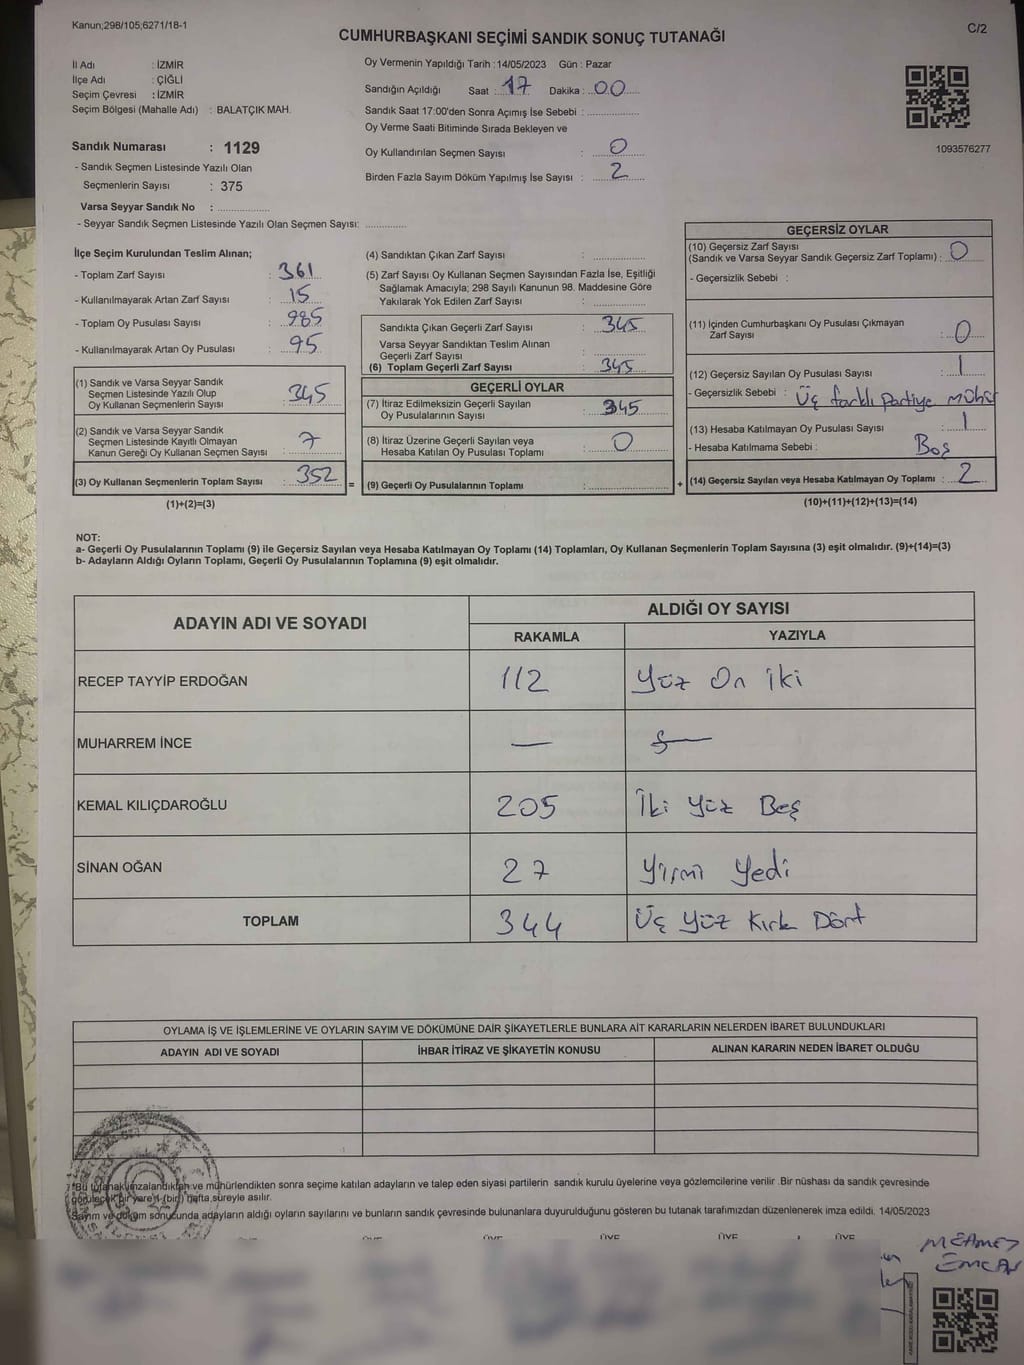 Kanun;298/105;6271/18-1
C/2
CUMHURBAŞKANI SEÇİMİ SANDIK SONUÇ TUTANAĞI
İl Adı : İZMİR
İlçe Adı : ÇİĞLİ
Seçim Çevresi : İZMİR
Seçim Bölgesi (Mahalle Adı) : BALATÇIK MAH.
Sandık Numarası : 1129
- Sandık Seçmen Listesinde Yazılı Olan
Seçmenlerin Sayısı : 375
Varsa Seyyar Sandık No : ....................
- Seyyar Sandık Seçmen Listesinde Yazılı Olan Seçmen Sayısı: ...............
Oy Vermenin Yapıldığı Tarih :14/05/2023 Gün : Pazar
Sandığın Açıldığı Saat : 17 Dakika : 00
Sandık Saat 17:00'den Sonra Açımış İse Sebebi : ....................
Oy Verme Saati Bitiminde Sırada Bekleyen ve
Oy Kullandırılan Seçmen Sayısı : 0
Birden Fazla Sayım Döküm Yapılmış İse Sayısı : 2
1093576277
İlçe Seçim Kurulundan Teslim Alınan;
- Toplam Zarf Sayısı : 361
- Kullanılmayarak Artan Zarf Sayısı : 15
- Toplam Oy Pusulası Sayısı : 985
- Kullanılmayarak Artan Oy Pusulası : 95
(1) Sandık ve Varsa Seyyar Sandık
Seçmen Listesinde Yazılı Olup
Oy Kullanan Seçmenlerin Sayısı : 345
(2) Sandık ve Varsa Seyyar Sandık
Seçmen Listesinde Kayıtlı Olmayan
Kanun Gereği Oy Kullanan Seçmen Sayısı : 7
(3) Oy Kullanan Seçmenlerin Toplam Sayısı : 352
(1)+(2)=(3)
=
(4) Sandıktan Çıkan Zarf Sayısı : ...............
(5) Zarf Sayısı Oy Kullanan Seçmen Sayısından Fazla İse, Eşitliği
Sağlamak Amacıyla; 298 Sayılı Kanunun 98. Maddesine Göre
Yakılarak Yok Edilen Zarf Sayısı : ...............
Sandıkta Çıkan Geçerli Zarf Sayısı : 345
Varsa Seyyar Sandıktan Teslim Alınan
Geçerli Zarf Sayısı : ...............
(6) Toplam Geçerli Zarf Sayısı : 345
GEÇERLİ OYLAR
(7) İtiraz Edilmeksizin Geçerli Sayılan
Oy Pusulalarının Sayısı : 345
(8) İtiraz Üzerine Geçerli Sayılan veya
Hesaba Katılan Oy Pusulası Toplamı : 0
(9) Geçerli Oy Pusulalarının Toplamı : ....................
+
GEÇERSİZ OYLAR
(10) Geçersiz Zarf Sayısı
(Sandık ve Varsa Seyyar Sandık Geçersiz Zarf Toplamı) : 0
- Geçersizlik Sebebi :
(11) İçinden Cumhurbaşkanı Oy Pusulası Çıkmayan
Zarf Sayısı : 0
(12) Geçersiz Sayılan Oy Pusulası Sayısı : 1
- Geçersizlik Sebebi : Üç farklı Partiye mühür
(13) Hesaba Katılmayan Oy Pusulası Sayısı : 1
- Hesaba Katılmama Sebebi : Boş
(14) Geçersiz Sayılan veya Hesaba Katılmayan Oy Toplamı : 2
(10)+(11)+(12)+(13)=(14)
NOT:
a- Geçerli Oy Pusulalarının Toplamı (9) ile Geçersiz Sayılan veya Hesaba Katılmayan Oy Toplamı (14) Toplamları, Oy Kullanan Seçmenlerin Toplam Sayısına (3) eşit olmalıdır. (9)+(14)=(3)
b- Adayların Aldığı Oyların Toplamı, Geçerli Oy Pusulalarının Toplamına (9) eşit olmalıdır.
ADAYIN ADI VE SOYADI
ALDIĞI OY SAYISI
RAKAMLA YAZIYLA
RECEP TAYYİP ERDOĞAN 112 Yüz On İki
MUHARREM İNCE —
KEMAL KILIÇDAROĞLU 205 İki Yüz Beş
SİNAN OĞAN 27 Yirmi Yedi
TOPLAM 344 Üç Yüz Kırk Dört
OYLAMA İŞ VE İŞLEMLERİNE VE OYLARIN SAYIM VE DÖKÜMÜNE DAİR ŞİKAYETLERLE BUNLARA AİT KARARLARIN NELERDEN İBARET BULUNDUKLARI
ADAYIN ADI VE SOYADI İHBAR İTİRAZ VE ŞİKAYETİN KONUSU ALINAN KARARIN NEDEN İBARET OLDUĞU
*Bu tutanak imzalandıktan ve mühürlendikten sonra seçime katılan adayların ve talep eden siyasi partilerin sandık kurulu üyelerine veya gözlemcilerine verilir .Bir nüshası da sandık çevresinde
görülecek bir yere 1 (bir) hafta süreyle asılır.
Sayım ve döküm sonucunda adayların aldığı oyların sayılarını ve bunların sandık çevresinde bulunanlara duyurulduğunu gösteren bu tutanak tarafımızdan düzenlenerek imza edildi. 14/05/2023
ÜYE ÜYE ÜYE ÜYE ÜYE